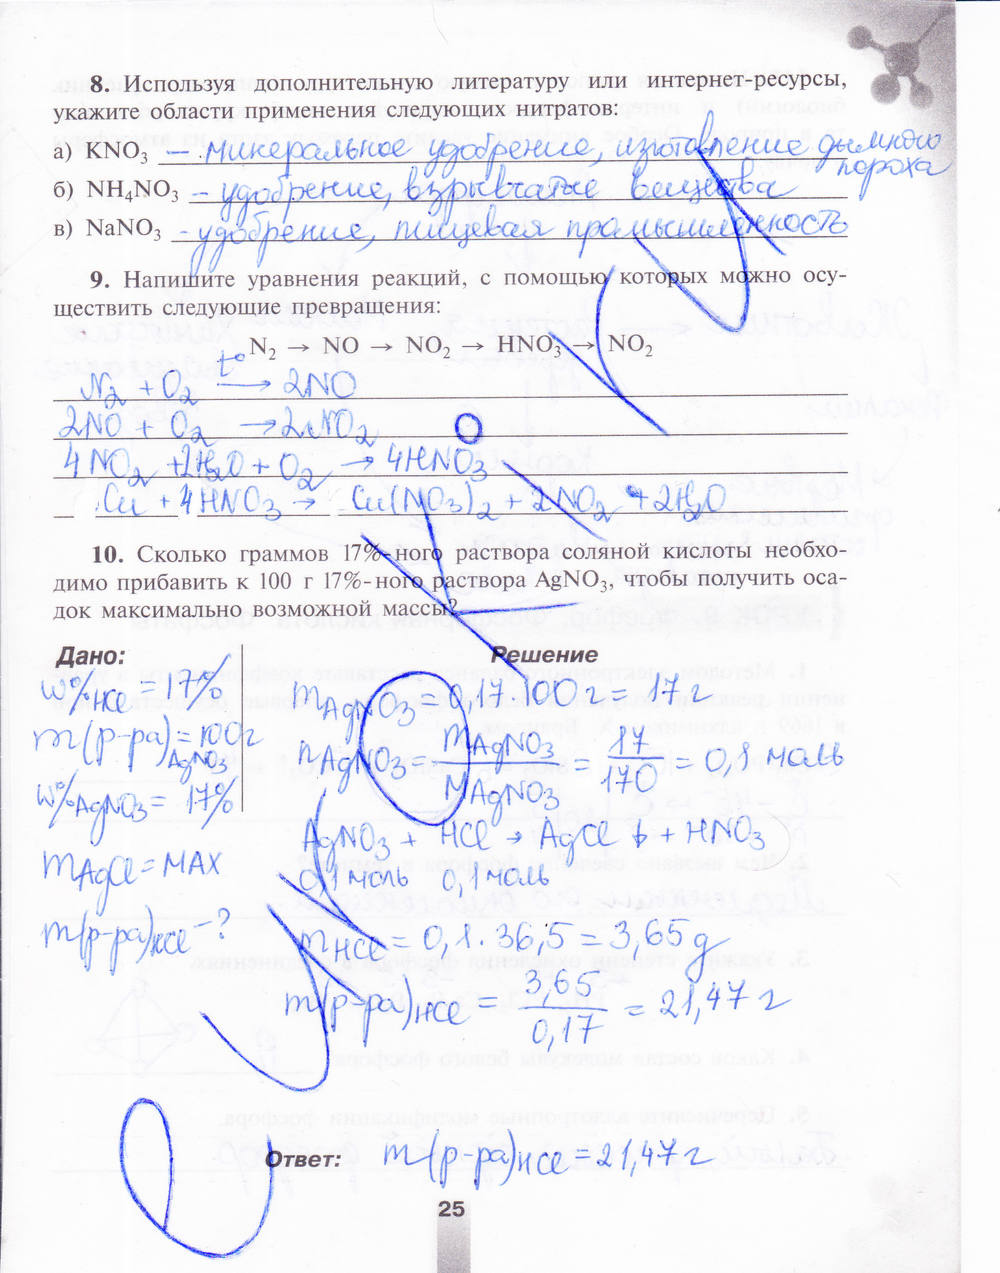 8. Используя дополнительную литературу или интернет-ресурсы,
укажите области применения следующих нитратов:
а) KNO₃ – минеральное удобрение, изготовление дымного
пороха
б) NH₄NO₃ – удобрение, взрывчатые вещества
в) NaNO₃ – удобрение, пищевая промышленность
9. Напишите уравнения реакций, с помощью которых можно осу-
ществить следующие превращения:
N₂ → NO → NO₂ → HNO₃ → NO₂
t°
N₂ + O₂ → 2NO
2NO + O₂ → 2NO₂
4NO₂ + 2H₂O + O₂ → 4HNO₃
Cu + 4HNO₃ → Cu(NO₃)₂ + 2NO₂ + 2H₂O
10. Сколько граммов 17%-ного раствора соляной кислоты необхо-
димо прибавить к 100 г 17%-ного раствора AgNO₃, чтобы получить оса-
док максимально возможной массы?
Дано:
w%HCl = 17%
m(р-ра) = 100г
AgNO₃
w%AgNO₃ = 17%
mAgCl = MAX
m(р-ра)HCl – ?
Решение
mAgNO₃ = 0,17·100г = 17г
nAgNO₃ = mAgNO₃/MAgNO₃ = 17/170 = 0,1 моль
AgNO₃ + HCl → AgCl↓ + HNO₃
0,1 моль 0,1 моль
mHCl = 0,1·36,5 = 3,65g
m(р-ра)HCl = 3,65/0,17 = 21,47г
Ответ: m(р-ра)HCl = 21,47г
25